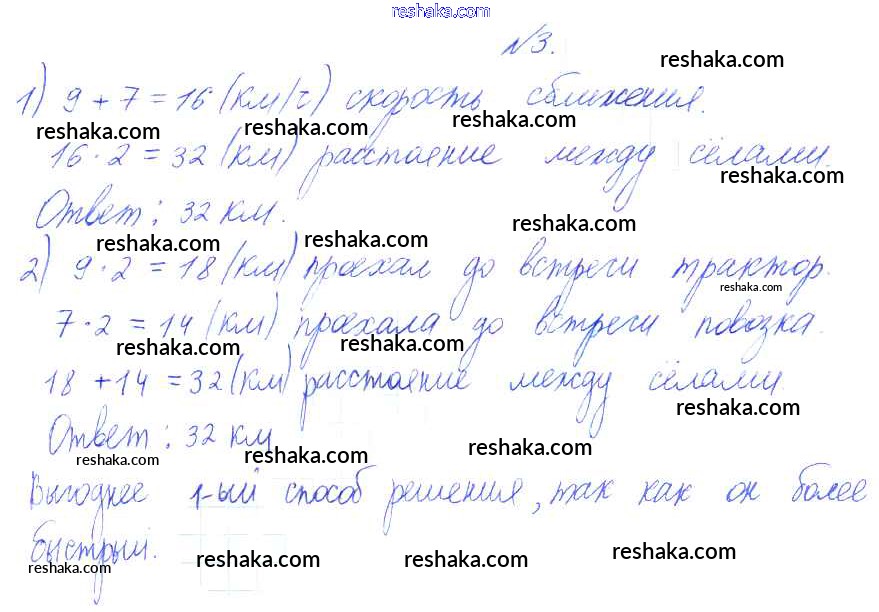 reshaka.com
№3.
reshaka.com
1) 9 + 7 = 16 (км/ч) скорость сближения.
reshaka.com reshaka.com reshaka.com
16 · 2 = 32 (км) расстояние между сёлами.
reshaka.com
Ответ: 32 км.
reshaka.com reshaka.com reshaka.com
2) 9 · 2 = 18 (км) проехал до встречи трактор.
reshaka.com
7 · 2 = 14 (км) проехала до встречи повозка.
reshaka.com reshaka.com
18 + 14 = 32 (км) расстояние между сёлами.
reshaka.com
Ответ: 32 км
reshaka.com reshaka.com reshaka.com
Выгоднее 1-ый способ решения, так как он более
быстрый.
reshaka.com reshaka.com reshaka.com reshaka.com